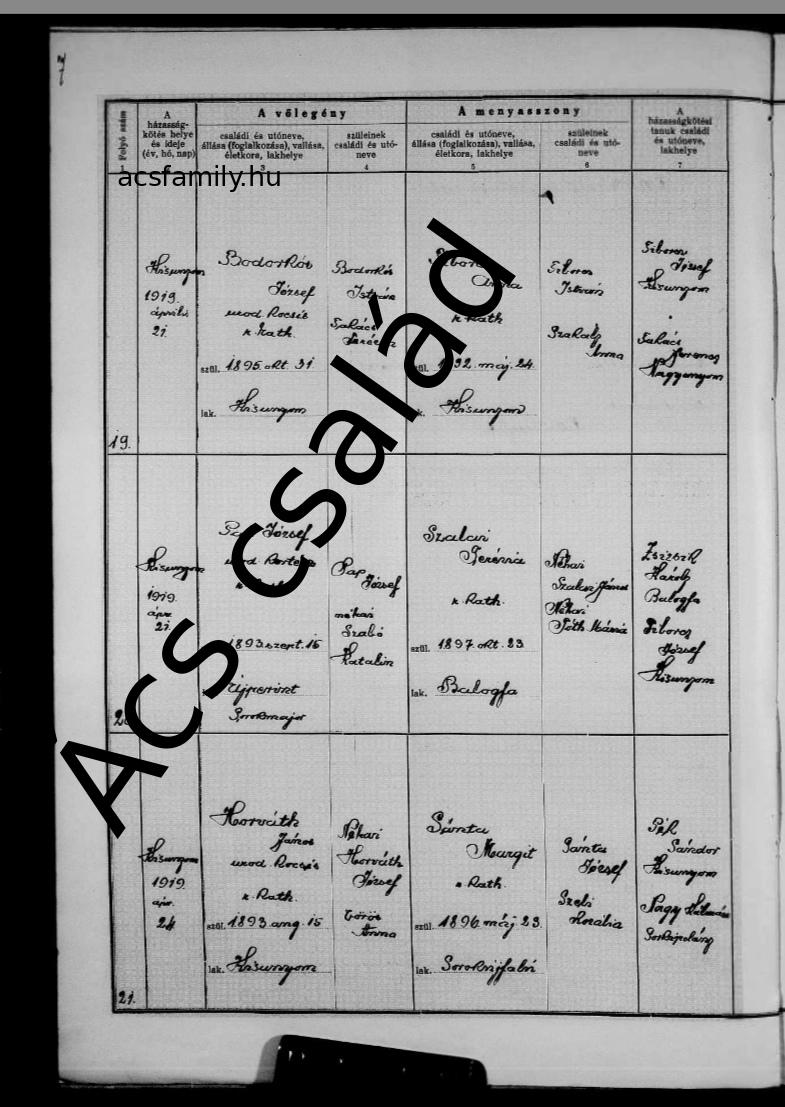 7
Folyó szám
A házasság-
kötés helye
és ideje
(év, hó, nap)
A vőlegény
családi és utóneve,
állása (foglalkozása), vallása,
életkora, lakhelye
szüleinek
családi és utó-
neve
A menyasszony
családi és utóneve,
állása (foglalkozása), vallása,
életkora, lakhelye
szüleinek
családi és utó-
neve
A
házasságkötési
tanuk családi
és utóneve,
lakhelye
1
3
4
5
6
7
acsfamily.hu
Acs család
19.
Kisunyom
1919.
április
21.
Bodorkós
József
urad. kocsis
r. kath.
szül. 1895. okt. 31
lak. Kisunyom
Bodorkós
István
Takács
Anna
r. kath
máj. 24.
Kisunyom
Tibor
István
Szakály
Anna
József
Kisunyom
Takács
Ferenc
Nagyunyom
Kisunyom
1919.
ápr.
21.
József
urad.
1893. szept. 15
Ujperint
Sorokmajor
Pap
József
néhai
Szabó
Katalin
Szalai
Terézia
r. kath.
szül. 1897. okt. 23
lak. Balogfa
Néhai
Szalai János
Néhai
Tóth Mária
Károly
Balogfa
József
Kisunyom
21.
Kisunyom
1919.
ápr.
24
Horváth
János
urad. kocsis
r. kath.
szül. 1893. aug. 15
lak. Kisunyom
Néhai
Horváth
József
Vörös
Anna
Sánta
Margit
r. kath.
szül. 1896. máj. 23.
lak. Sorokujfalu
Sánta
József
Szebi
Rozália
Pék
Sándor
Kisunyom
Nagy Kálmán
Sorkipolány